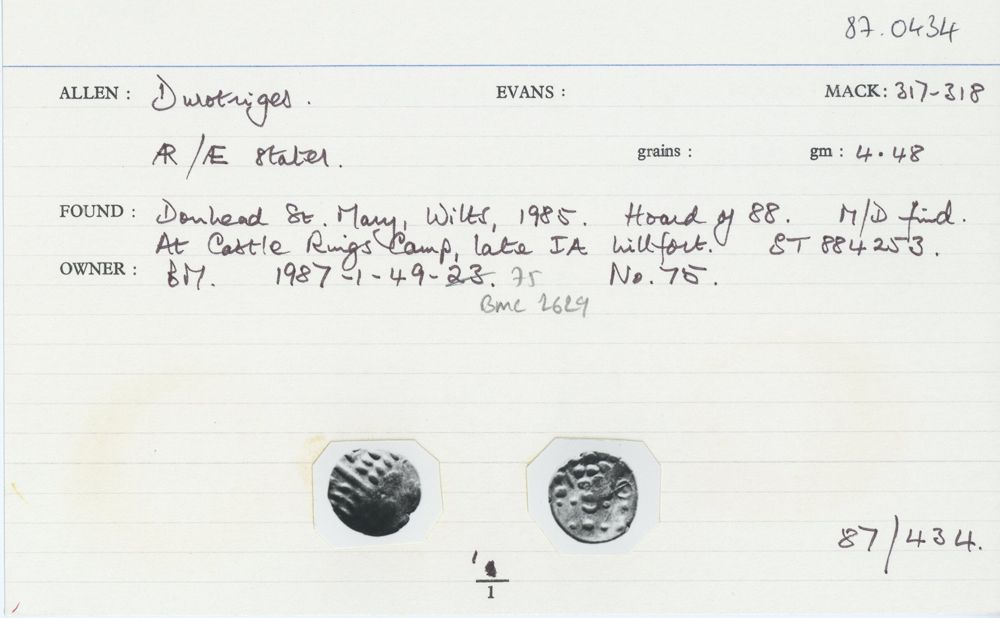 87.0434
ALLEN : Durotriges. EVANS : MACK: 317-318
AR/Æ stater. grains : gm : 4.48
FOUND : Donhead St. Mary, Wilts, 1985. Hoard of 88. M/D find.
At Castle Rings Camp, late IA hillfort. ST 884253.
OWNER : BM. 1987-1-49-23. 75 No. 75.
BMC 2629
1
1
87/434.